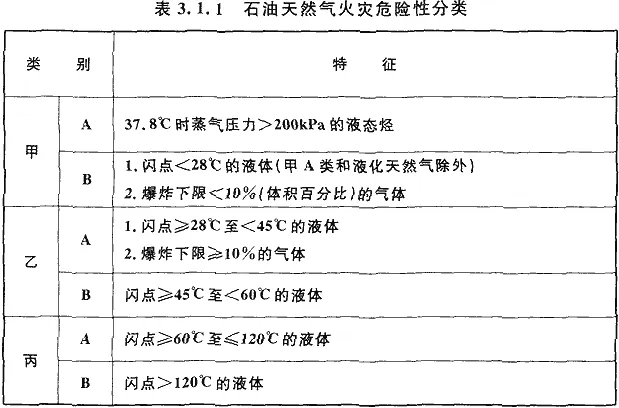 表 3.1.1 石油天然气火灾危险性分类
类 别 特 征
甲 A 37.8℃时蒸气压力＞200kPa的液态烃
B 1.闪点＜28℃的液体(甲A类和液化天然气除外)
2.爆炸下限＜10%(体积百分比)的气体
乙 A 1.闪点≥28℃至＜45℃的液体
2.爆炸下限≥10%的气体
B 闪点≥45℃至＜60℃的液体
丙 A 闪点≥60℃至≤120℃的液体
B 闪点＞120℃的液体